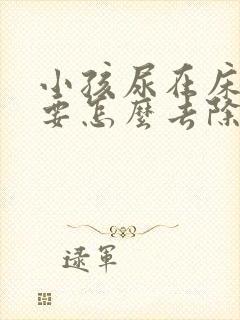 小孩尿在床
要怎麼去除
逯軍